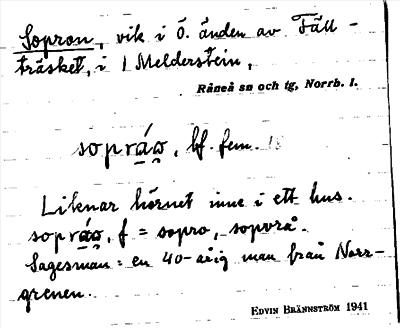 Sopron, vik i Ö. änden av Fäll-
träsket, i I Melderstein,
Råneå sn och tg, Norrb. l.
sopráo̯, bf. fem.
Liknar hörnet inne i ett hus.
sopráo̯, f = sopro, sopvrå.
Sagesman: en 40-årig man från Norr-
grenen.
EDVIN BRÄNNSTRÖM 1941